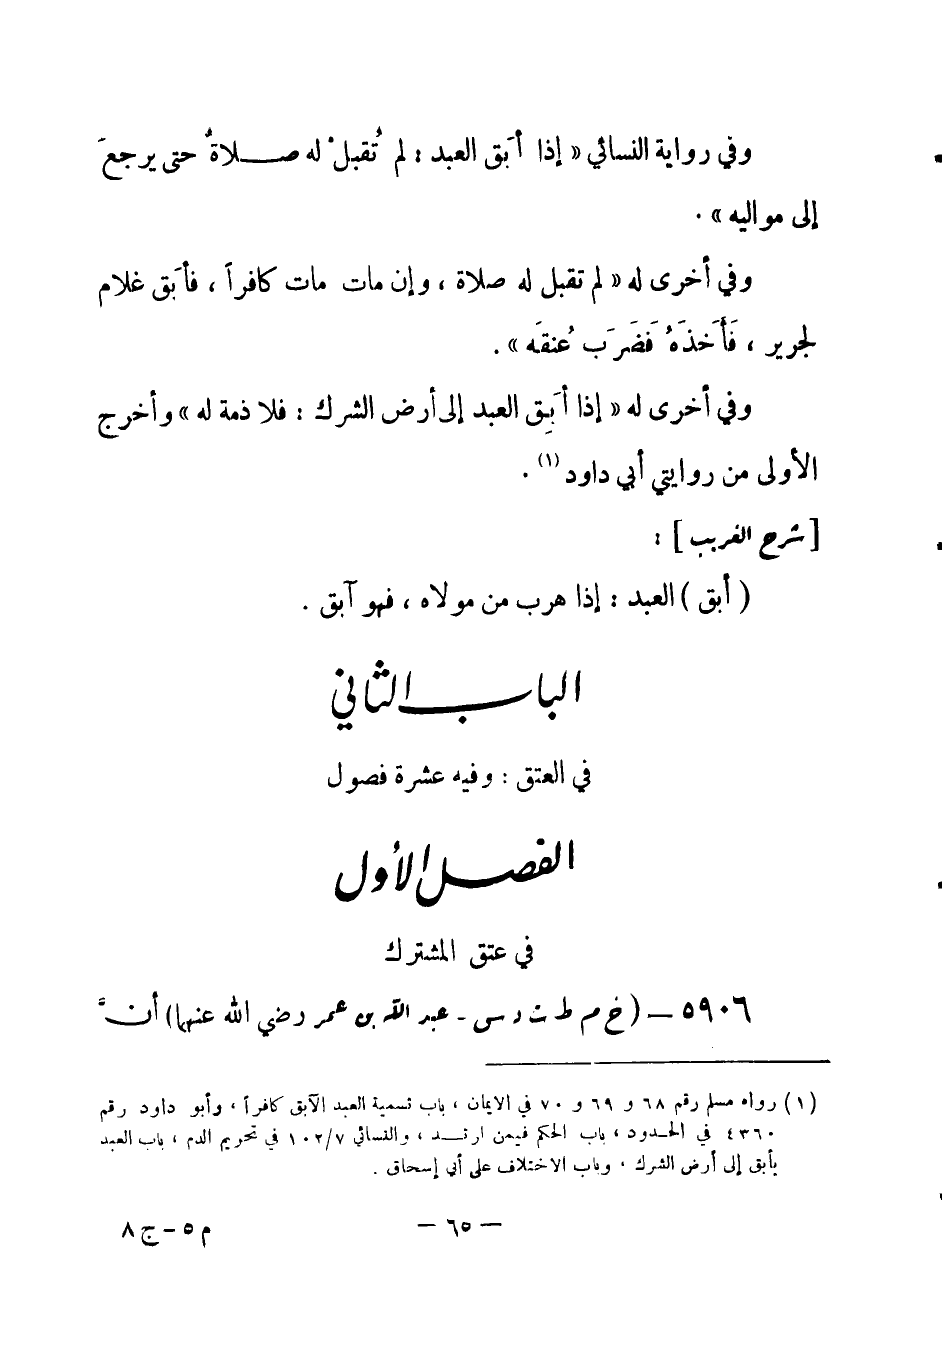 وفي رواية النسائي « إذا أَبق العبد : لم تُقبلْ له صـــلاةٌ حتى يرجعَ
إلى مواليه » .
وفي أخرى له « لم تقبل له صلاة ، وإن مات مات كافراً ، فأَبق غلام
لجرير ، فَأَخذَهُ فَضَرَبَ عُنقَه » .
وفي أخرى له « إذا أَبِق العبد إلى أرض الشرك : فلا ذمة له » وأخرج
الأولى من روايتي أبي داود (١) .
[ شرح الغريب ] :
( أبق ) العبد : إذا هرب من مولاه ، فهو آبق .
البـاب الثاني
في العتق : وفيه عشرة فصول
الفصـل الأول
في عتق المشترك
٥٩٠٦ – ( خ م ط ت د س - عبد الله بن عمر رضي الله عنهما ) أنَّ
( ١ ) رواه مسلم رقم ٦٨ و ٦٩ و ٧٠ في الايمان ، باب تسمية العبد الآبق كافراً ، وأبو داود رقم
٤٣٦٠ في الحـدود ، باب الحكم فيمن ارتـــد ، والنسائي ٧/ ١٠٢ في تحريم الدم ، باب العبد
يأبق إلى أرض الشرك ، وباب الاختلاف على أبي إسحاق .
– ٦٥ –
م ٥ – ج ٨